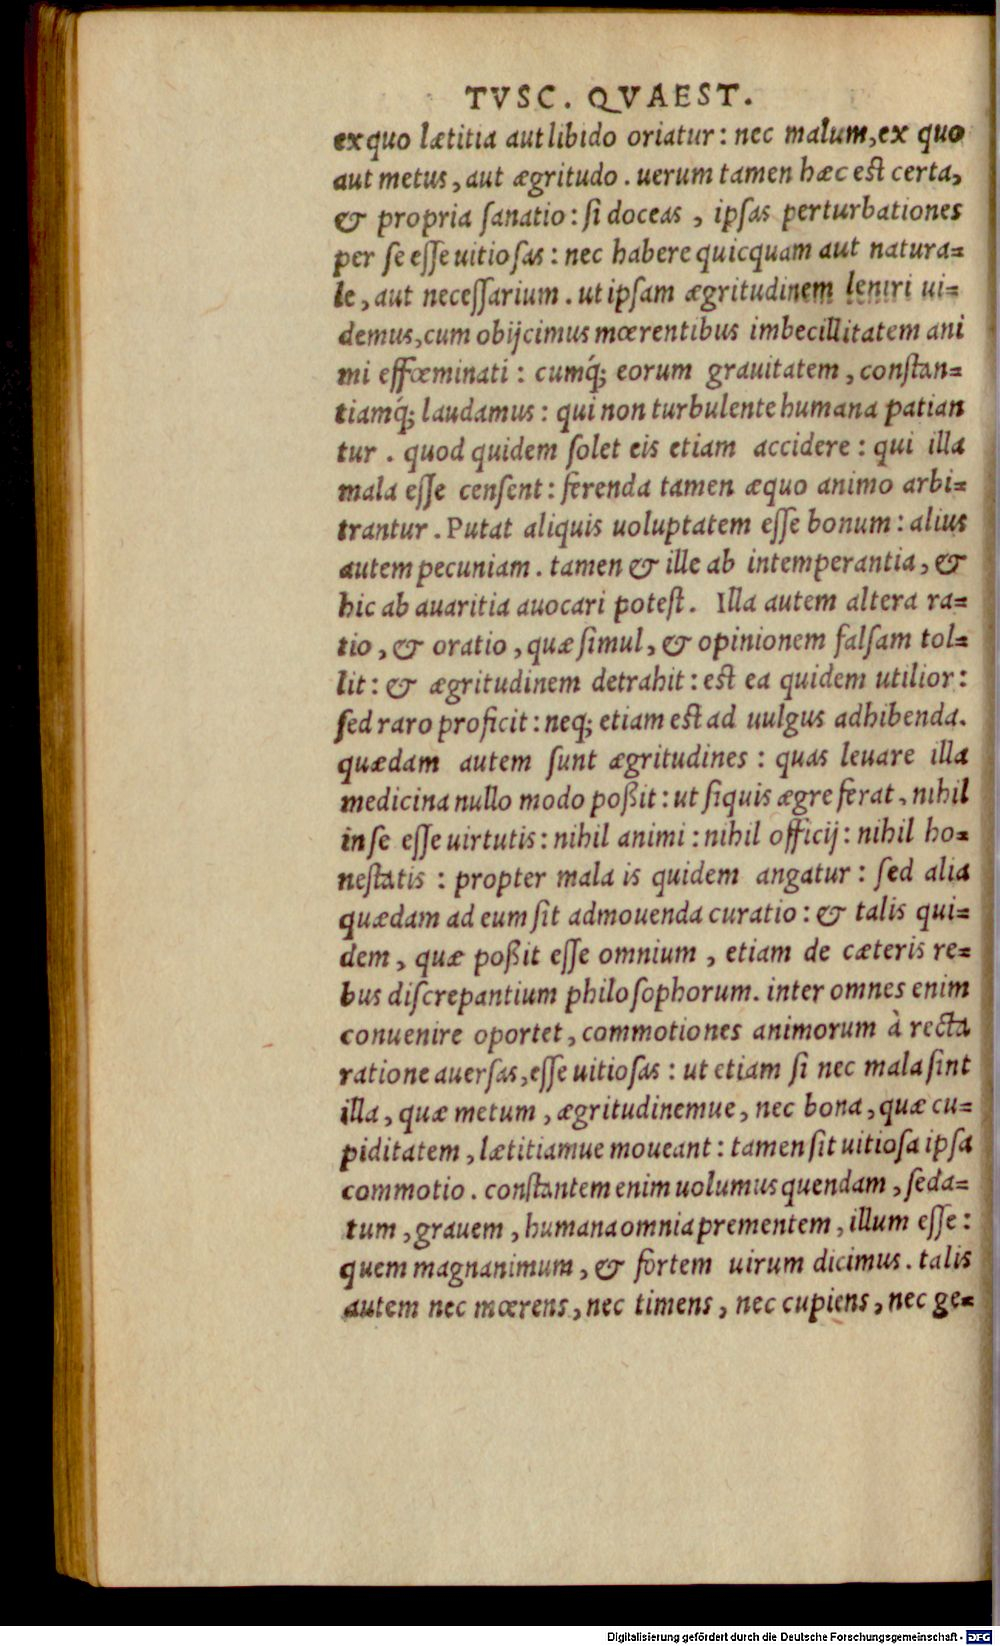 TVSC. QVAEST.
ex quo lætitia aut libido oriatur: nec malum, ex quo
aut metus, aut ægritudo. uerum tamen hæc est certa,
& propria ſanatio: ſi doceas, ipſas perturbationes
per ſe eſſe uitioſas: nec habere quicquam aut natura=
le, aut neceſſarium. ut ipſam ægritudinem leniri ui=
demus, cum obijcimus mœrentibus imbecillitatem ani
mi effœminati: cumq́; eorum grauitatem, conſtan=
tiamq́; laudamus: qui non turbulente humana patian
tur. quod quidem ſolet eis etiam accidere: qui illa
mala eſſe cenſent: ferenda tamen æquo animo arbi=
trantur. Putat aliquis uoluptatem eſſe bonum: alius
autem pecuniam. tamen & ille ab intemperantia, &
hic ab auaritia auocari poteſt. Illa autem altera ra=
tio, & oratio, quæ ſimul, & opinionem falſam tol=
lit: & ægritudinem detrahit: est ea quidem utilior:
ſed raro proficit: neq; etiam est ad uulgus adhibenda.
quædam autem ſunt ægritudines: quas leuare illa
medicina nullo modo poßit: ut ſiquis ægre ferat, nihil
in ſe eſſe uirtutis: nihil animi: nihil officij: nihil ho=
neſtatis: propter mala is quidem angatur: ſed alia
quædam ad eum ſit admouenda curatio: & talis qui=
dem, quæ poßit eſſe omnium, etiam de cæteris re=
bus diſcrepantium philoſophorum. inter omnes enim
conuenire oportet, commotiones animorum à recta
ratione auerſas, eſſe uitioſas: ut etiam ſi nec mala ſint
illa, quæ metum, ægritudinemue, nec bona, quæ cu=
piditatem, lætitiamue moueant: tamen ſit uitioſa ipſa
commotio. conſtantem enim uolumus quendam, ſeda=
tum, grauem, humana omnia prementem, illum eſſe:
quem magnanimum, & fortem uirum dicimus. talis
autem nec mœrens, nec timens, nec cupiens, nec ge=
Digitalisierung gefördert durch die Deutsche Forschungsgemeinschaft - DFG